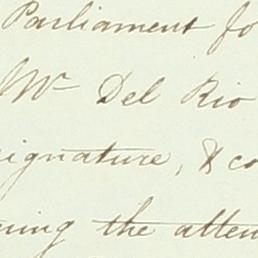 Parliament fo
Mr Del Rio
signature, & co
ning the atten